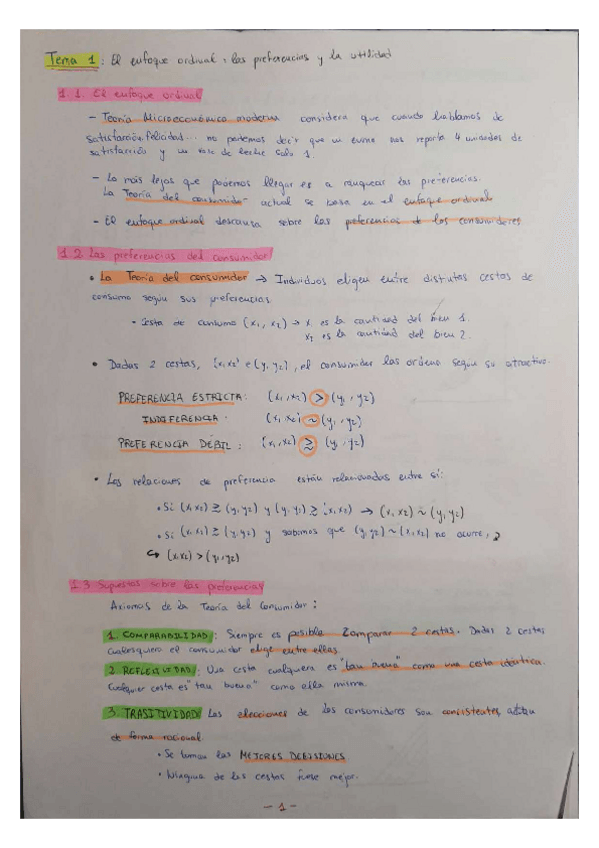 Tema 1: El enfoque ordinal: las preferencias y la utilidad
1.1. El enfoque ordinal
- Teoría Microeconómica moderna considera que cuando hablamos de
satisfacción, felicidad... no podemos decir que un euro nos reporta 4 unidades de
satisfacción y un vaso de leche solo 1.
- Lo más lejos que podemos llegar es a ranquear las preferencias.
La Teoría del consumidor actual se basa en el enfoque ordinal
- El enfoque ordinal descansa sobre las preferencias de los consumidores
1.2 Las preferencias del consumidor
• La Teoría del consumidor → Individuos eligen entre distintas cestas de
consumo según sus preferencias.
• Cesta de consumo (x₁, x₂) → x₁ es la cantidad del bien 1.
x₂ es la cantidad del bien 2.
• Dadas 2 cestas, (x₁x₂) e (y₁ y₂), el consumidor las ordena según su atractivo.
PREFERENCIA ESTRICTA: (x₁,x₂) > (y₁, y₂)
INDIFERENCIA: (x₁,x₂) ~ (y₁, y₂)
PREFERENCIA DÉBIL: (x₁,x₂) ≳ (y₁, y₂)
• Las relaciones de preferencia están relacionadas entre sí:
• Si (x₁x₂) ≳ (y₁ y₂) y (y₁ y₂) ≳ (x₁x₂) → (x₁ x₂) ~ (y₁ y₂)
• Si (x₁x₂) ≳ (y₁ y₂) y sabemos que (y₁ y₂) ~ (x₁x₂) no ocurre,
↪ (x₁x₂) > (y₁, y₂)
1.3 Supuestos sobre las preferencias
Axiomas de la Teoría del Consumidor:
1. COMPARABILIDAD: Siempre es posible comparar 2 cestas. Dadas 2 cestas
cualesquiera el consumidor elige entre ellas.
2. REFLEXIVIDAD: Una cesta cualquiera es "tan buena" como una cesta idéntica.
Cualquier cesta es "tan buena" como ella misma.
3. TRASITIVIDAD: Las elecciones de los consumidores son consistentes,
de forma racional.
• Se toman las MEJORES DECISIONES
• Ninguna de las cestas fuese mejor.
- 1 -